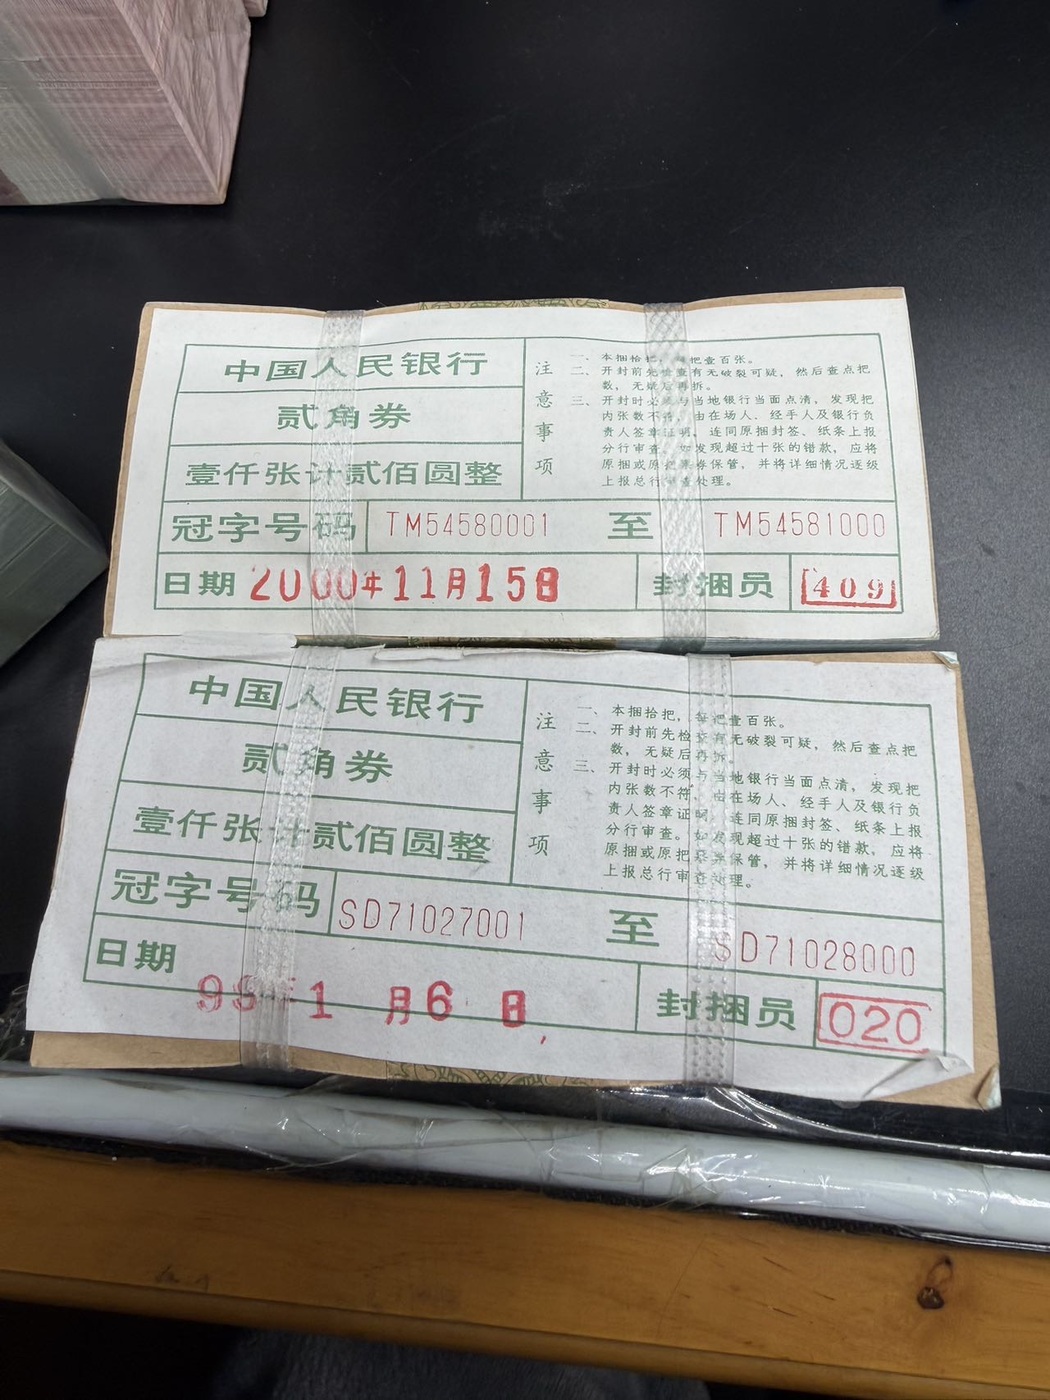 中国人民银行
贰角券
壹仟张计贰佰圆整
注意事项
一、本捆拾把，每把壹百张。
二、开封前先检查有无破裂可疑，然后查点把
数，无疑后再拆。
三、开封时必须与当地银行当面点清，发现把
内张数不符，由在场人、经手人及银行负
责人签章证明，连同原捆封签、纸条上报
分行审查。如发现超过十张的错款，应将
原捆或原把票券保管，并将详细情况逐级
上报总行审查处理。
冠字号码 TM54580001 至 TM54581000
日期 2000年11月15日 封捆员 409
中国人民银行
贰角券
壹仟张计贰佰圆整
注意事项
一、本捆拾把，每把壹百张。
二、开封前先检查有无破裂可疑，然后查点把
数，无疑后再拆。
三、开封时必须与当地银行当面点清，发现把
内张数不符，由在场人、经手人及银行负
责人签章证明，连同原捆封签、纸条上报
分行审查。如发现超过十张的错款，应将
原捆或原把票券保管，并将详细情况逐级
上报总行审查处理。
冠字号码 SD71027001 至 SD71028000
日期 1月6日 封捆员 020